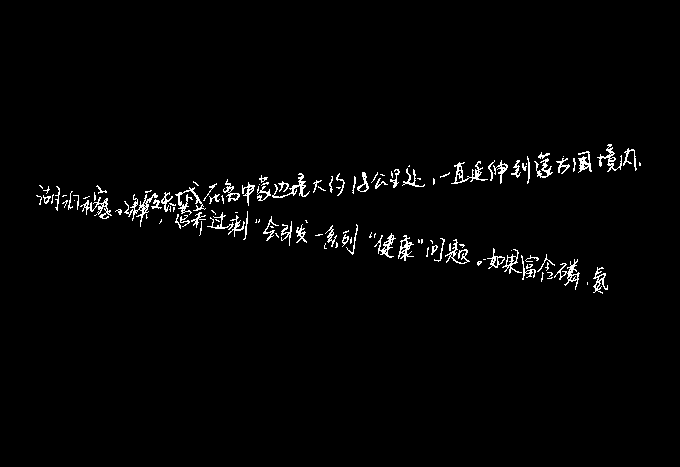 长城在离中蒙边境大约18公里处,一直延伸到蒙古国境内.
湖泊和 营养过剩"会引发一系列“健康"问题。如果富含磷、氮